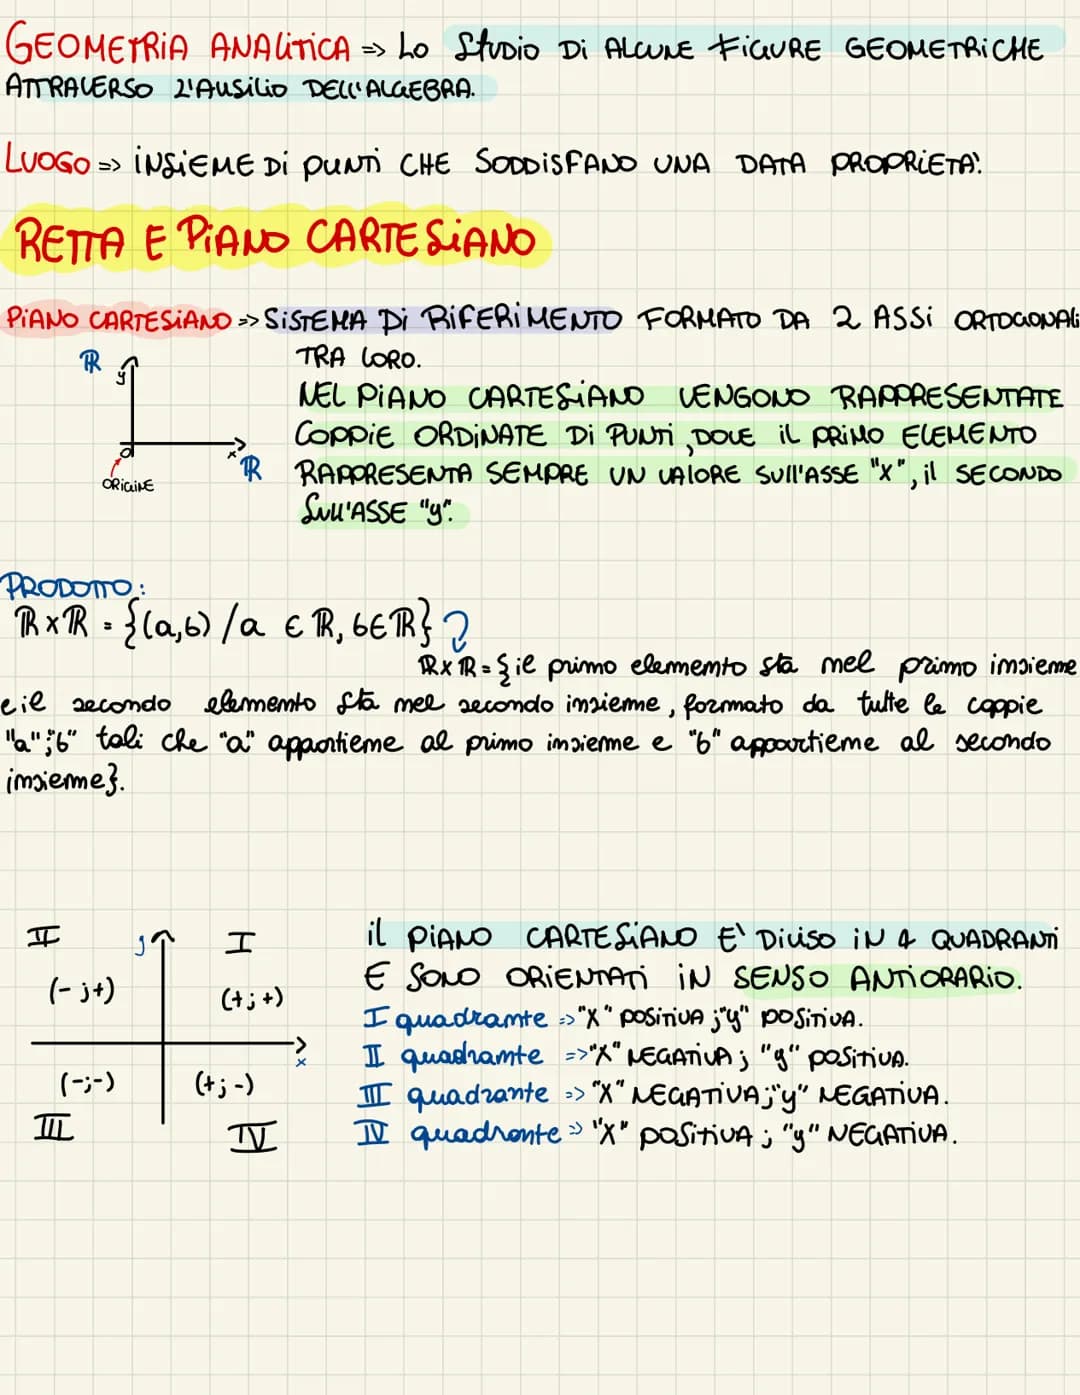 GEOMETRIA ANALITICA => LO STUDIO DI ALCUNE FIGURE GEOMETRICHE
ATTRAVERSO L'AUSILIO DELL'ALGEBRA.
LUOGO => INSIEME DI PUNTI CHE SODDISFANO UNA DATA PROPRIETA'.
RETTA E PIANO CARTESIANO
PIANO CARTESIANO => SISTEMA DI RIFERIMENTO FORMATO DA 2 ASSI ORTOGONALI
TRA LORO.
ℝ y
NEL PIANO CARTESIANO VENGONO RAPPRESENTATE
COPPIE ORDINATE DI PUNTI, DOVE IL PRIMO ELEMENTO
O x ℝ
RAPPRESENTA SEMPRE UN VALORE SULL'ASSE "X", IL SECONDO
ORIGINE
SULL'ASSE "y".
PRODOTTO:
ℝxℝ = {(a,b) /a ∈ ℝ, b∈ℝ}
ℝxℝ = {il primo elemento sta nel primo insieme
e il secondo elemento sta nel secondo insieme, formato da tutte le coppie
"a";"b" tali che "a" appartiene al primo insieme e "b" appartiene al secondo
insieme}.
II y I
(-;+) (+;+)
x
(-;-) (+;-)
III IV
il PIANO CARTESIANO E' DIVISO IN 4 QUADRANTI
E SONO ORIENTATI IN SENSO ANTIORARIO.
I quadrante => "X" POSITIVA ;"y" POSITIVA.
II quadrante => "X" NEGATIVA ; "y" POSITIVA.
III quadrante => "X" NEGATIVA;"y" NEGATIVA.
IV quadrante => "X" POSITIVA ; "y" NEGATIVA.